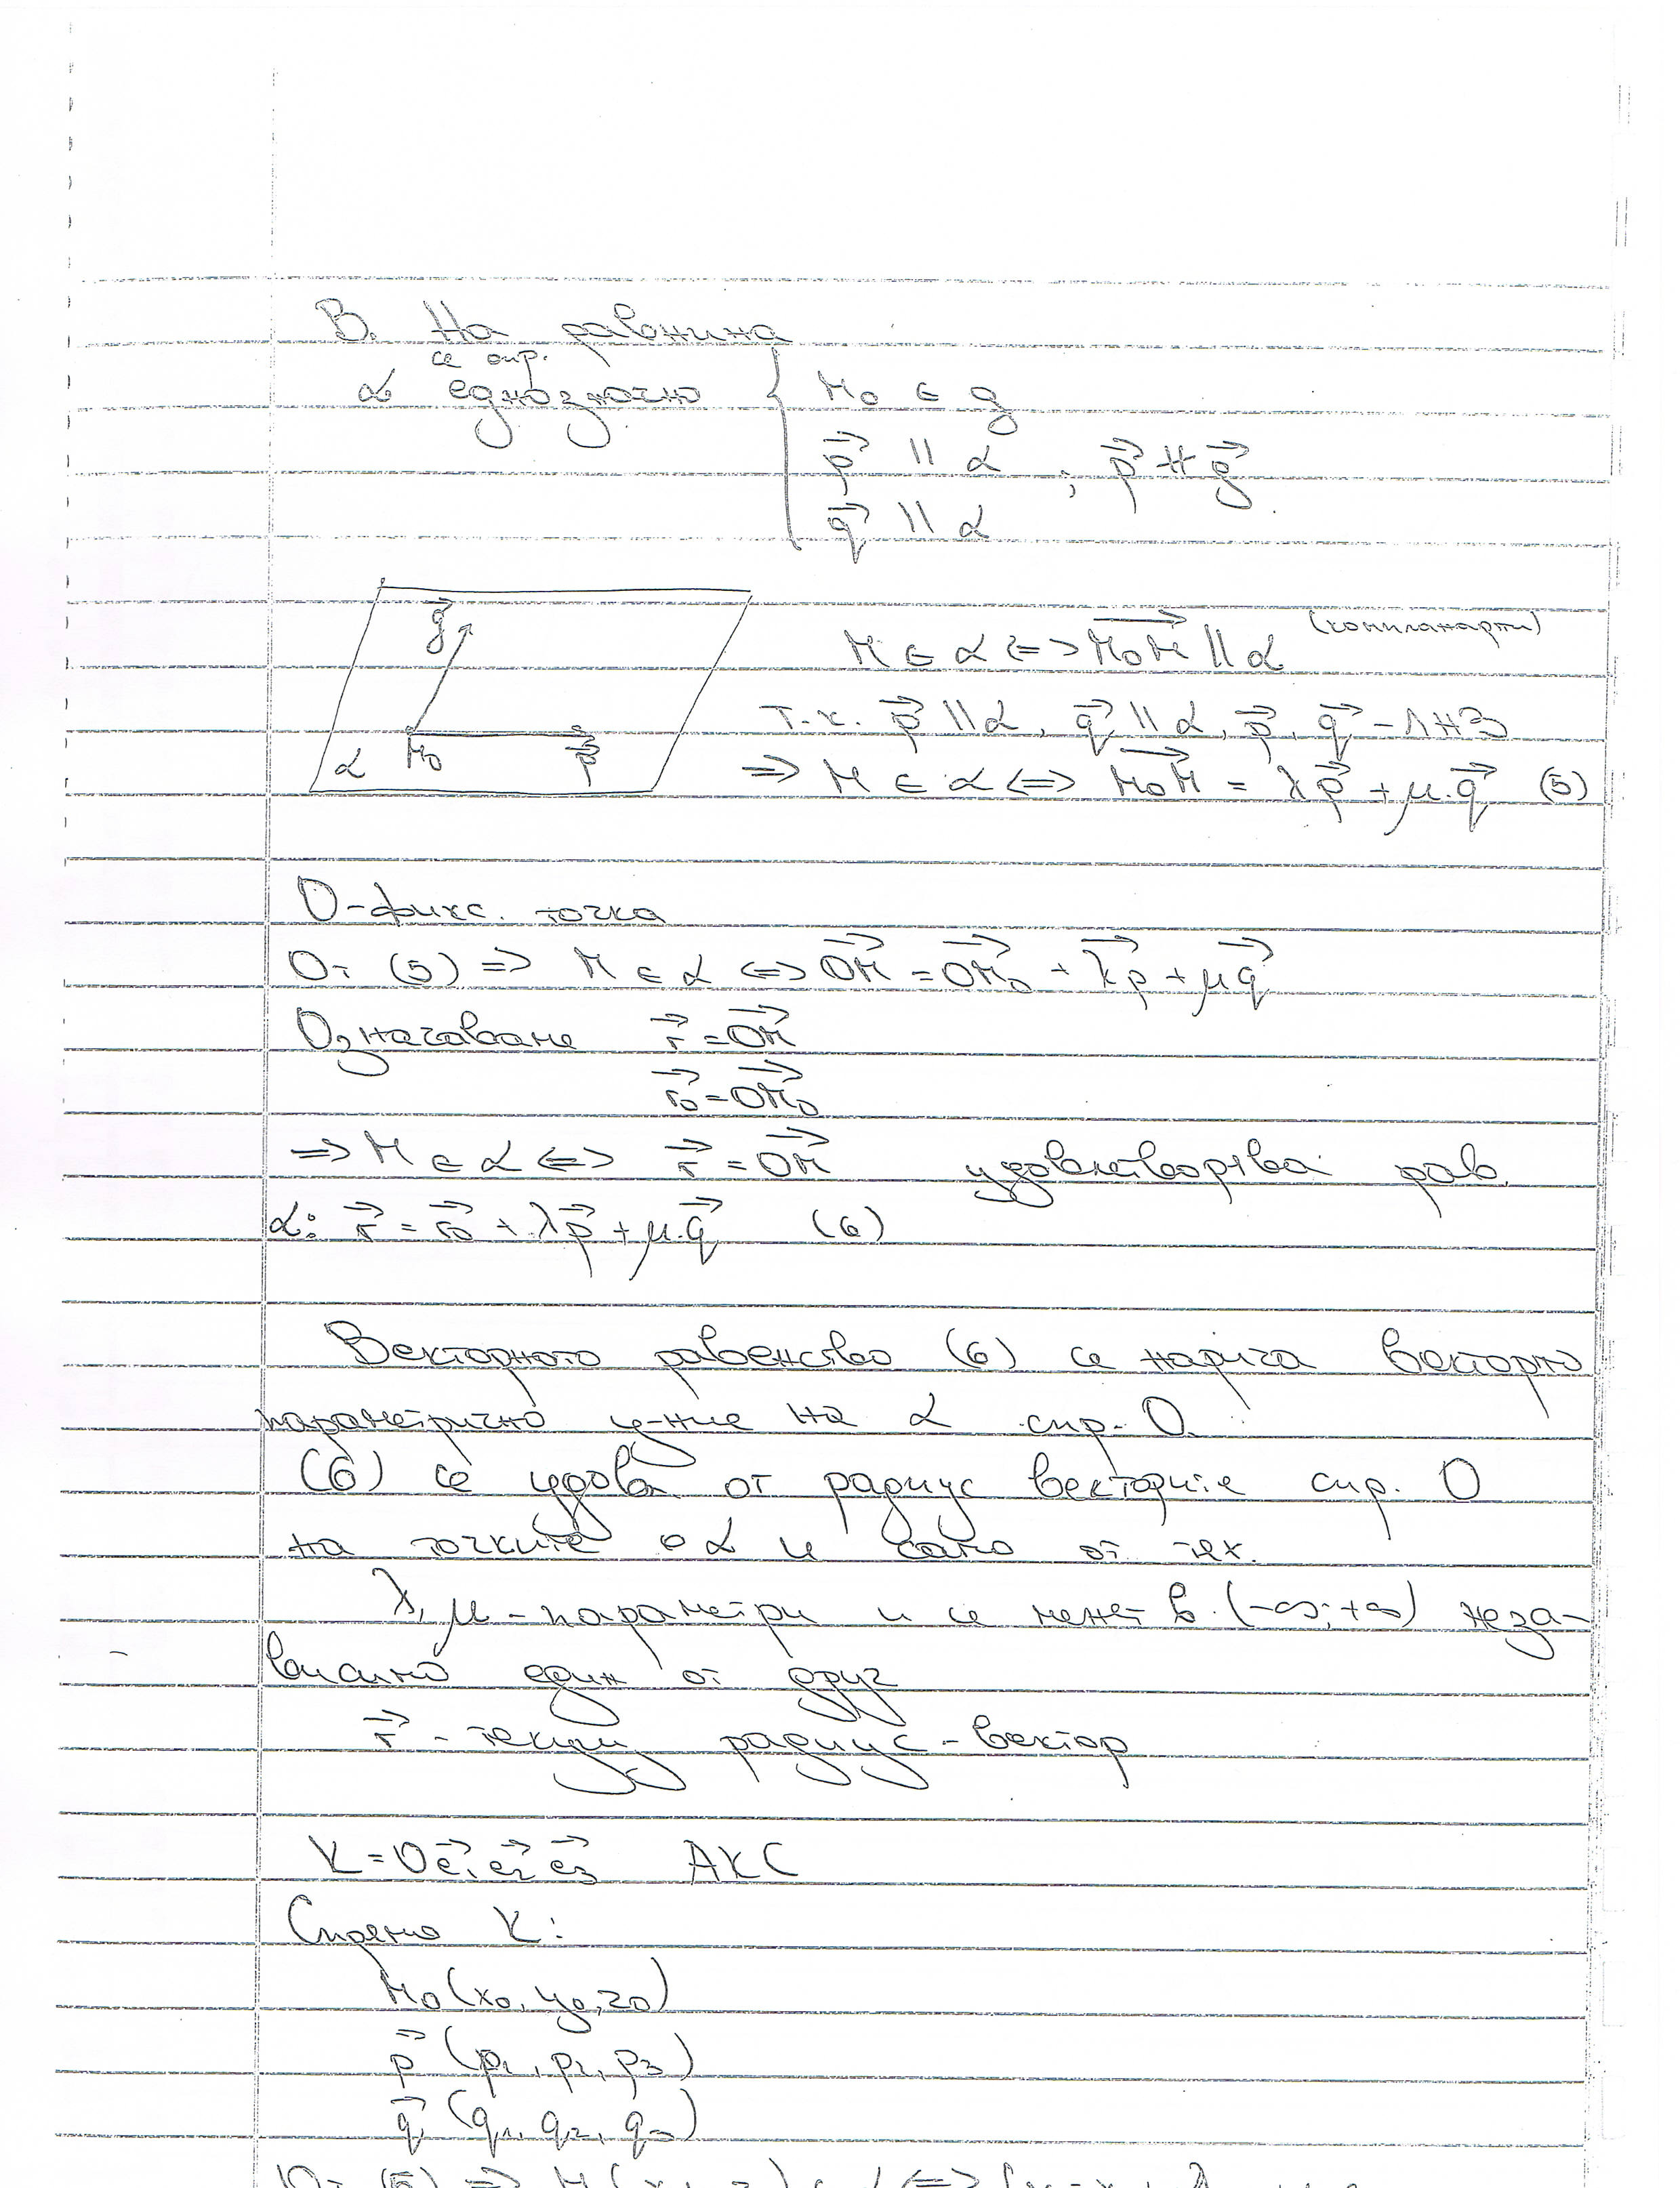 В. На равнина
се опр.
α еднозначно { M₀ ∈ g
p⃗ ∥ α ; p⃗ ∦ q⃗
q⃗ ∥ α
q⃗
M ∈ α <=> M₀M⃗ ∥ α (компланарни)
т.к. p⃗ ∥ α, q⃗ ∥ α, p⃗, q⃗ - ЛНЗ
α M₀ p⃗
=> M ∈ α <=> M₀M⃗ = λp⃗ + μ.q⃗ (5)
O-фикс. точка
От (5) => M ∈ α <=> OM⃗ = OM₀⃗ + λp⃗ + μq⃗
Означаваме r⃗ = OM⃗
r₀⃗ = OM₀⃗
=> M ∈ α <=> r⃗ = OM⃗ удовлетворява рав.
α: r⃗ = r₀⃗ + λp⃗ + μ.q⃗ (6)
Векторното равенство (6) се нарича векторно
параметрично у-ние на α спр. O.
(6) се удовл. от радиус векторите спр. O
на точките от α и само от тях.
λ, μ - параметри и се менят в (-∞; +∞) неза-
висимо един от друг
r⃗ - текущ радиус-вектор
K = Oe₁⃗e₂⃗e₃⃗ АКС
Спрямо K:
M₀(x₀, y₀, z₀)
p⃗ (p₁, p₂, p₃)
q⃗ (q₁, q₂, q₃)
От (5) =>